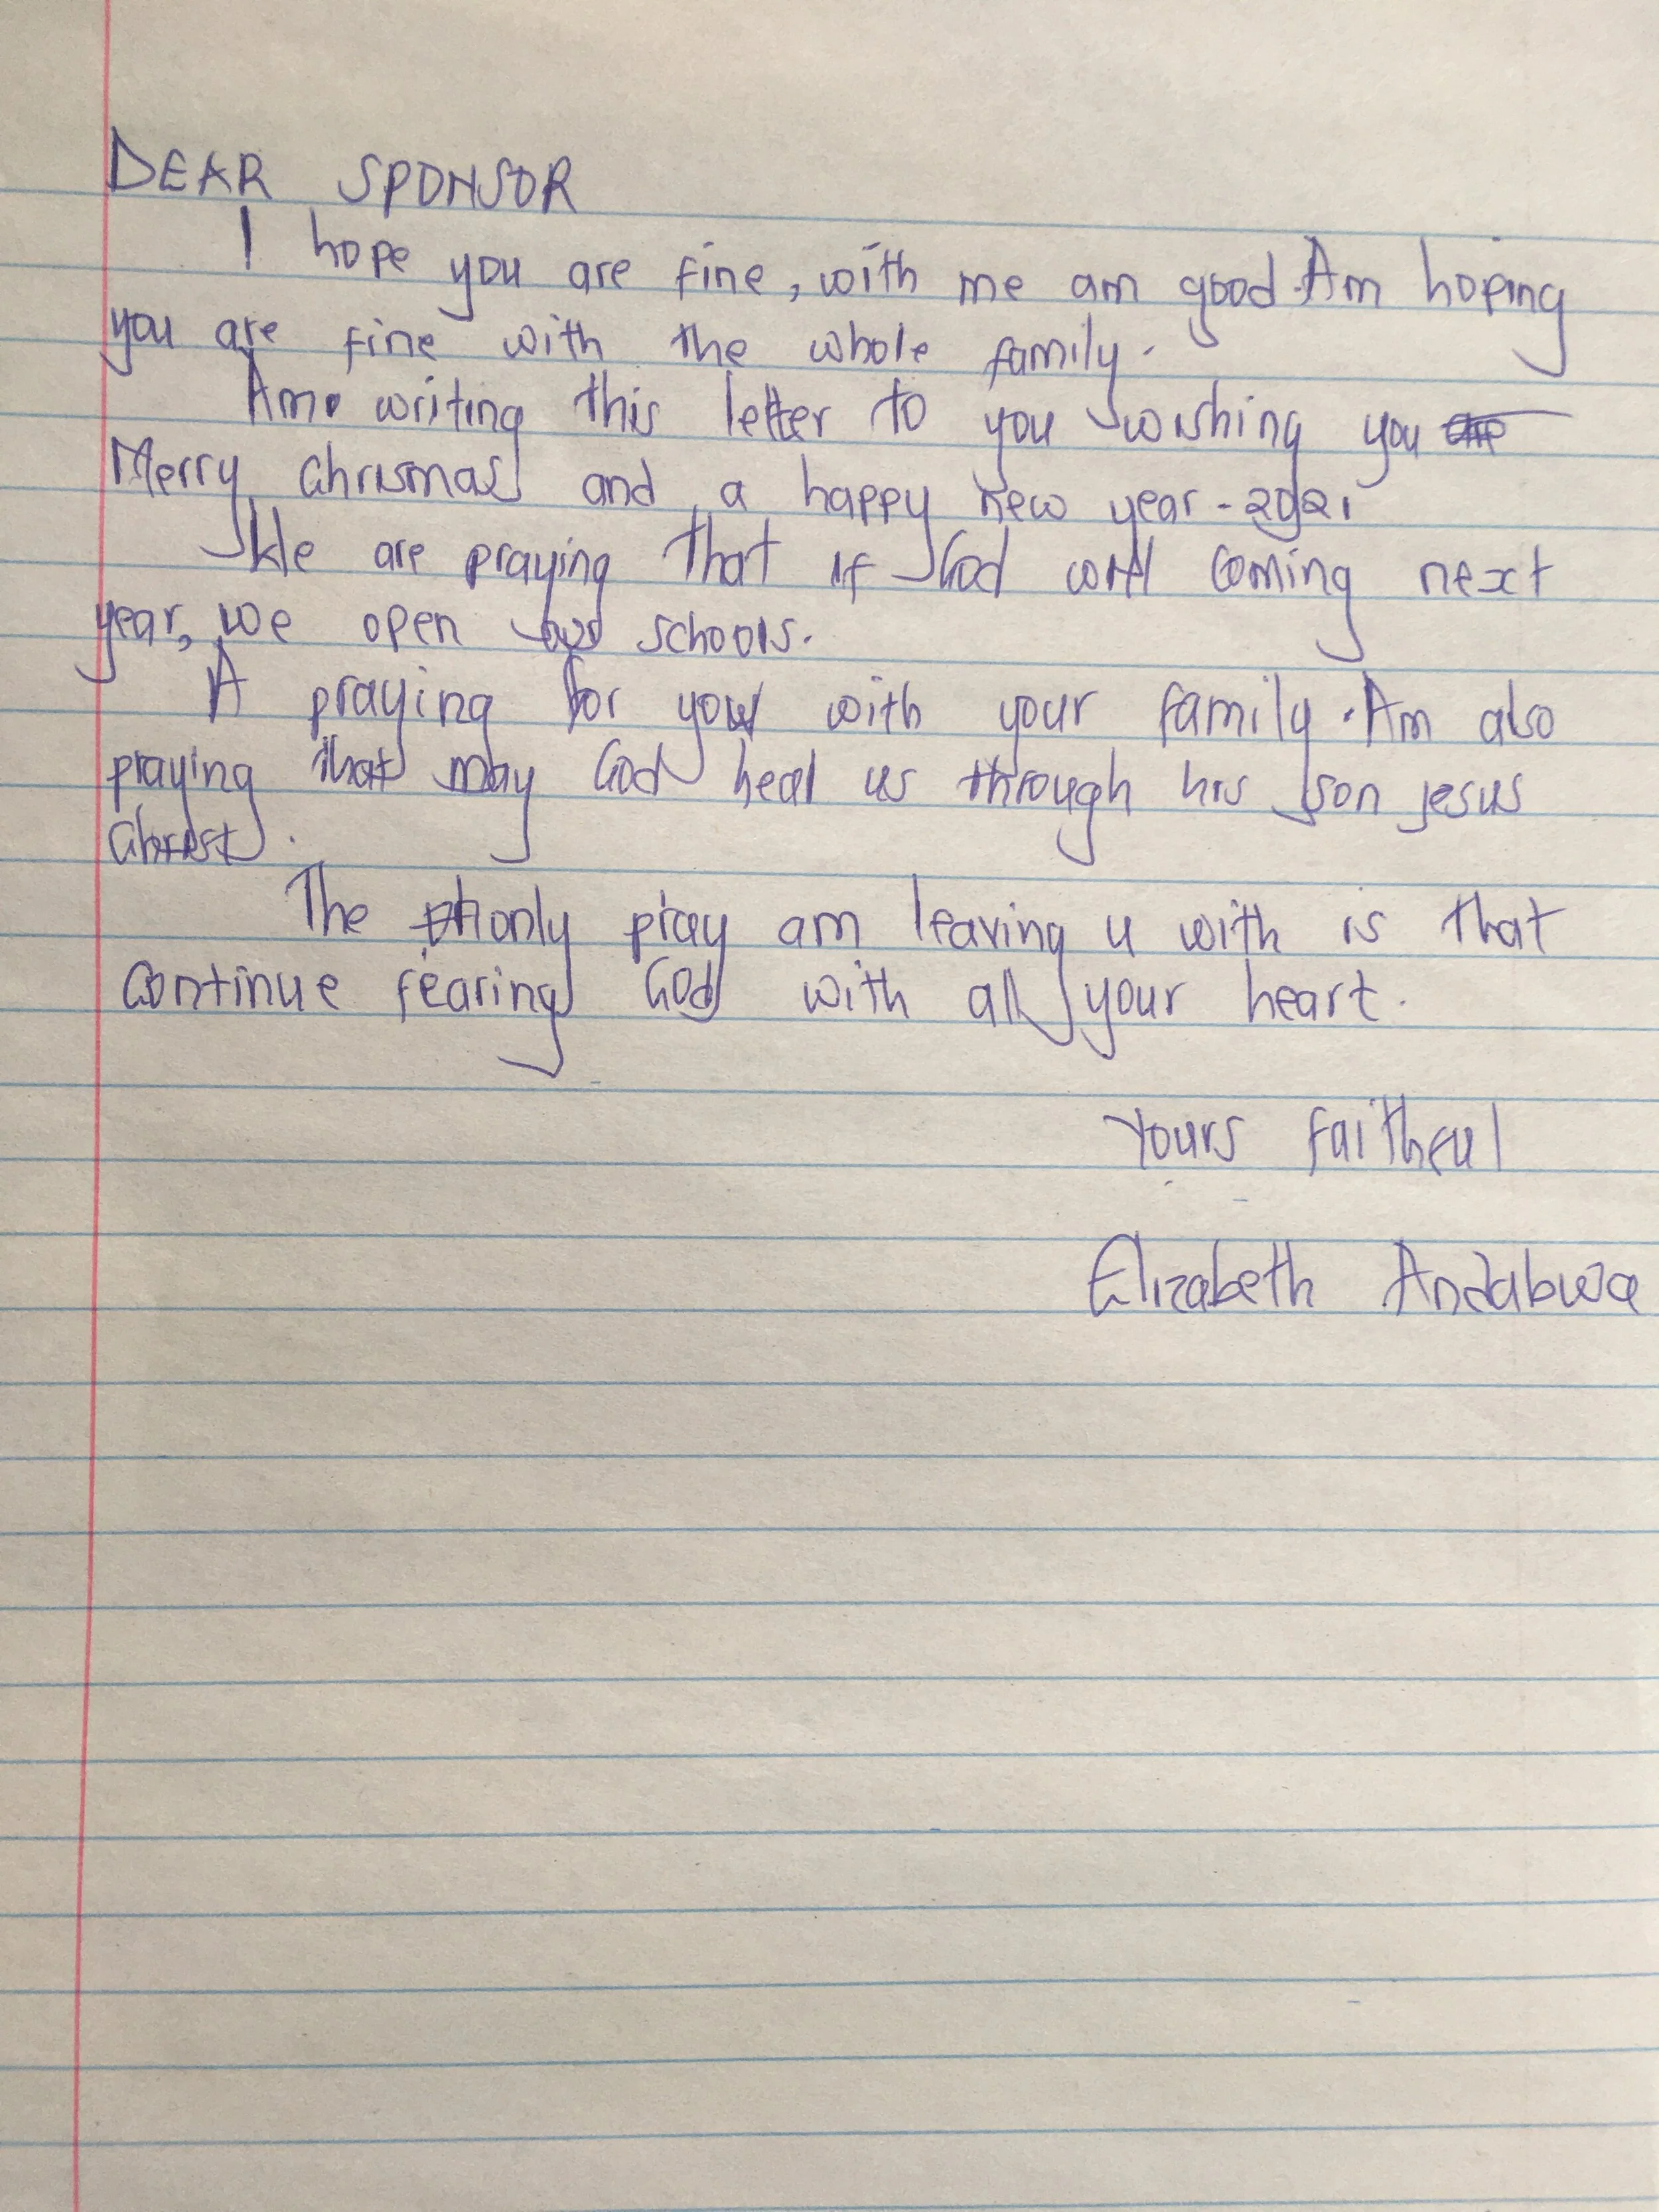 DEAR SPONSOR
I hope you are fine, with me am good. Am hoping
you are fine with the whole family.
Am writing this letter to you wishing you
Merry Chrismas and a happy new year - 2021
We are praying that if God will coming next
year, we open our schools.
A praying for you with your family. Am also
praying that may God heal us through his son jesus
Christ.
The only pray am leaving u with is that
Continue fearing God with all your heart.
Yours faithful
Elizabeth Andabwa